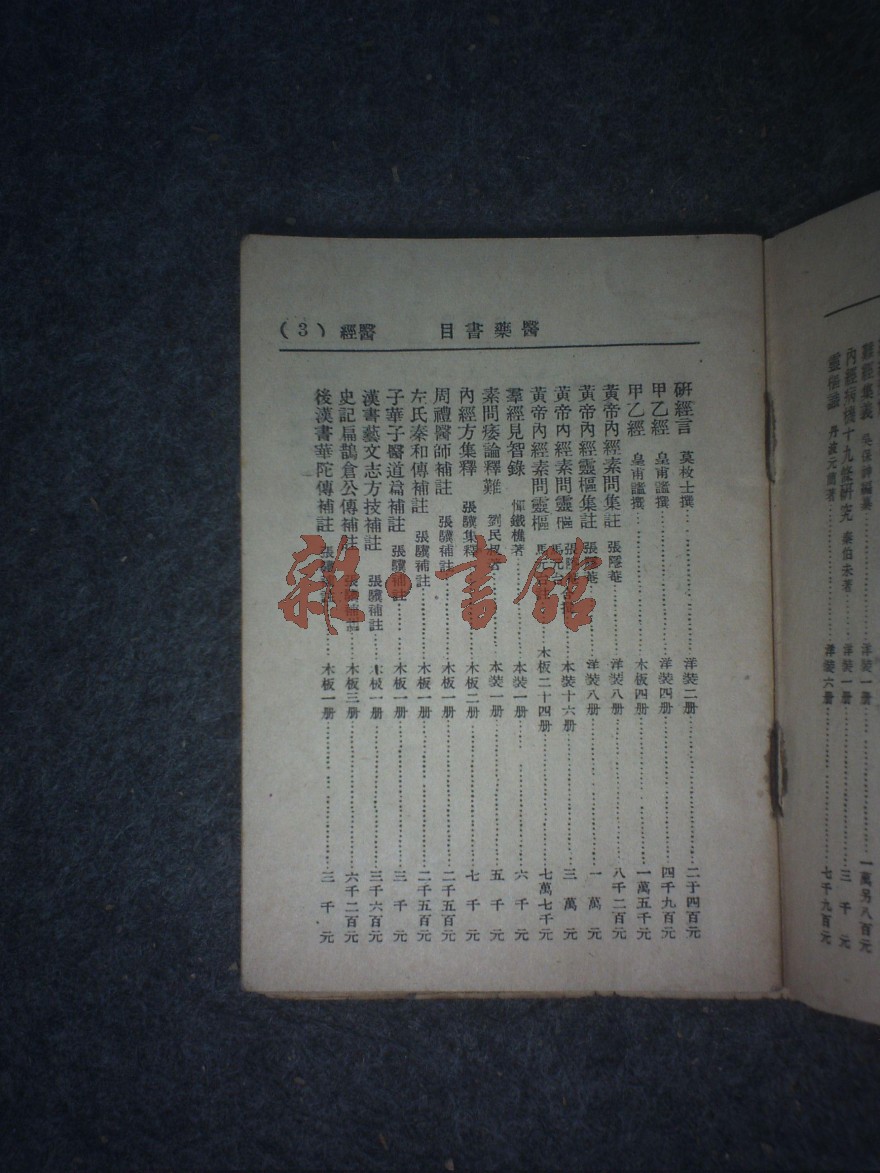 醫藥書目 醫經 (3)
研經言 莫枚士撰 洋裝二册 二千四百元
甲乙經 皇甫謐撰 洋裝四册 四千九百元
甲乙經 皇甫謐撰 木板四册 一萬五千元
黃帝內經素問集註 張隱菴 洋裝八册 八千二百元
黃帝內經靈樞集註 張隱菴 洋裝八册 一萬元
黃帝內經素問靈樞 馬元台 本裝十六册 三萬元
黃帝內經素問靈樞 木板二十四册 七萬七千元
羣經見智錄 惲鐵樵著 本裝一册 六千元
素問痿論釋難 劉民叔著 本裝一册 五千元
內經方集釋 張驥集釋 木板二册 七千元
周禮醫師補註 張驥補註 木板一册 二千五百元
左氏秦和傳補註 張驥補註 木板一册 二千五百元
子華子醫道篇補註 張驥補註 木板一册 三千元
漢書藝文志方技補註 張驥補註 木板一册 三千六百元
史記扁鵲倉公傳補註 張驥補註 木板三册 六千二百元
後漢書華陀傳補註 張驥補註 木板一册 三千元
難經集義 吳保神編集 洋裝一册 一萬另八百元
內經病機十九條研究 秦伯未著 洋裝一册 三千元
靈樞識 丹波元簡著 洋裝六册 七千九百元
雜·書館